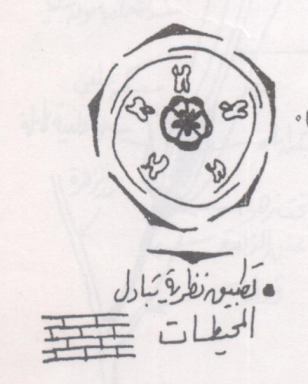 • تطبيق نظرية تبادل
المحيطات